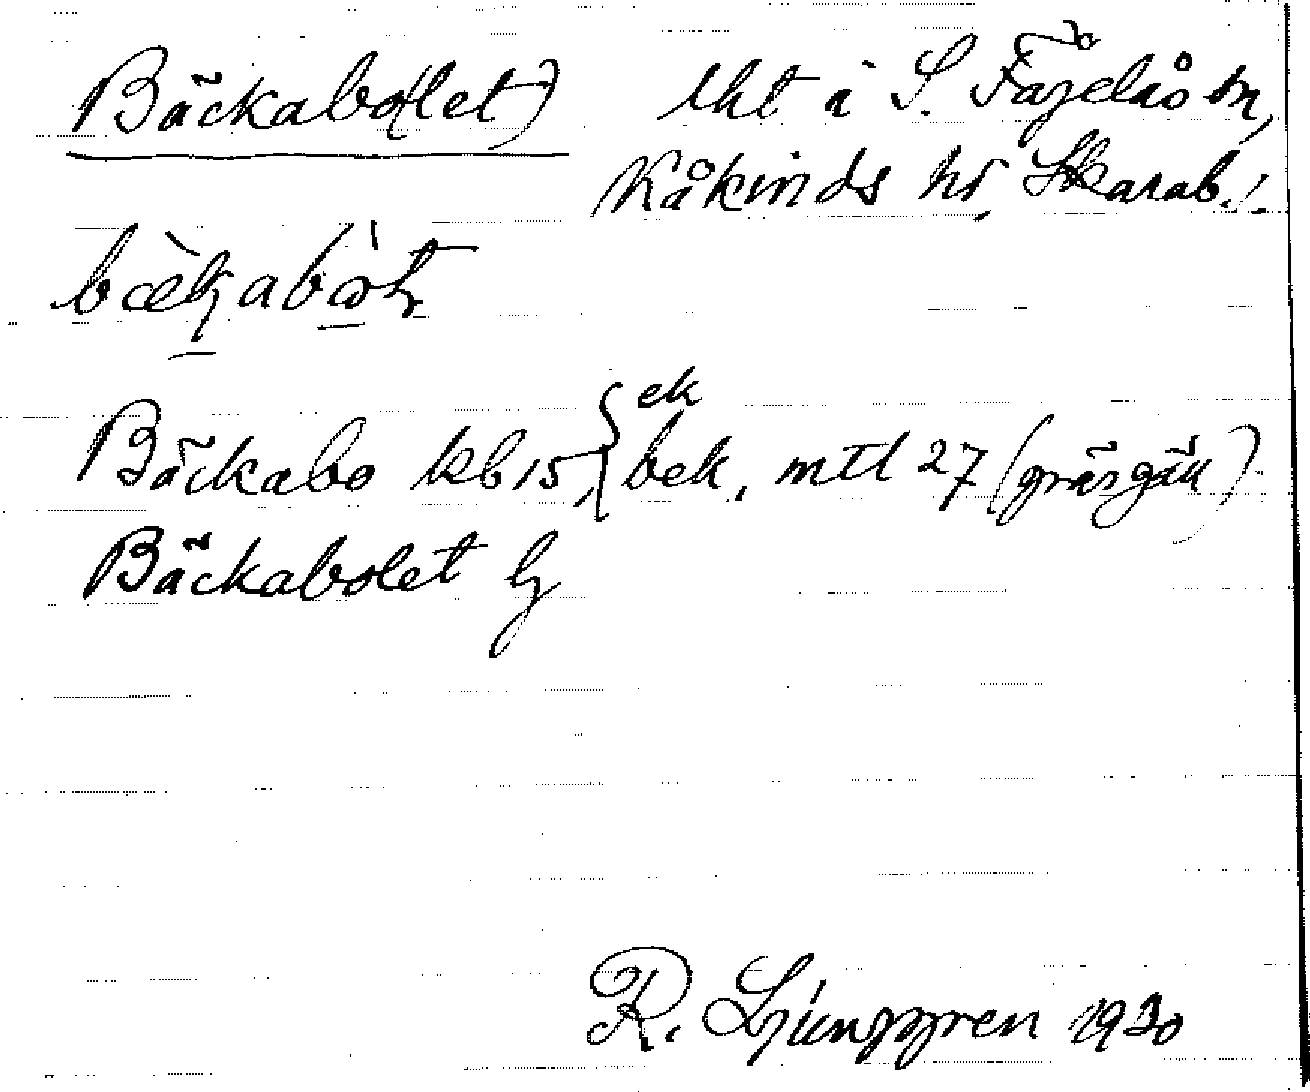 Bäckabo(let) lht i S. Fågelås sn,
Kåkinds hd, Skarab. l.
Bäckabo kb 15, { ek
bek, mtl 27 (gräsgäll)
Bäckabolet
R. Ljunggren 1930